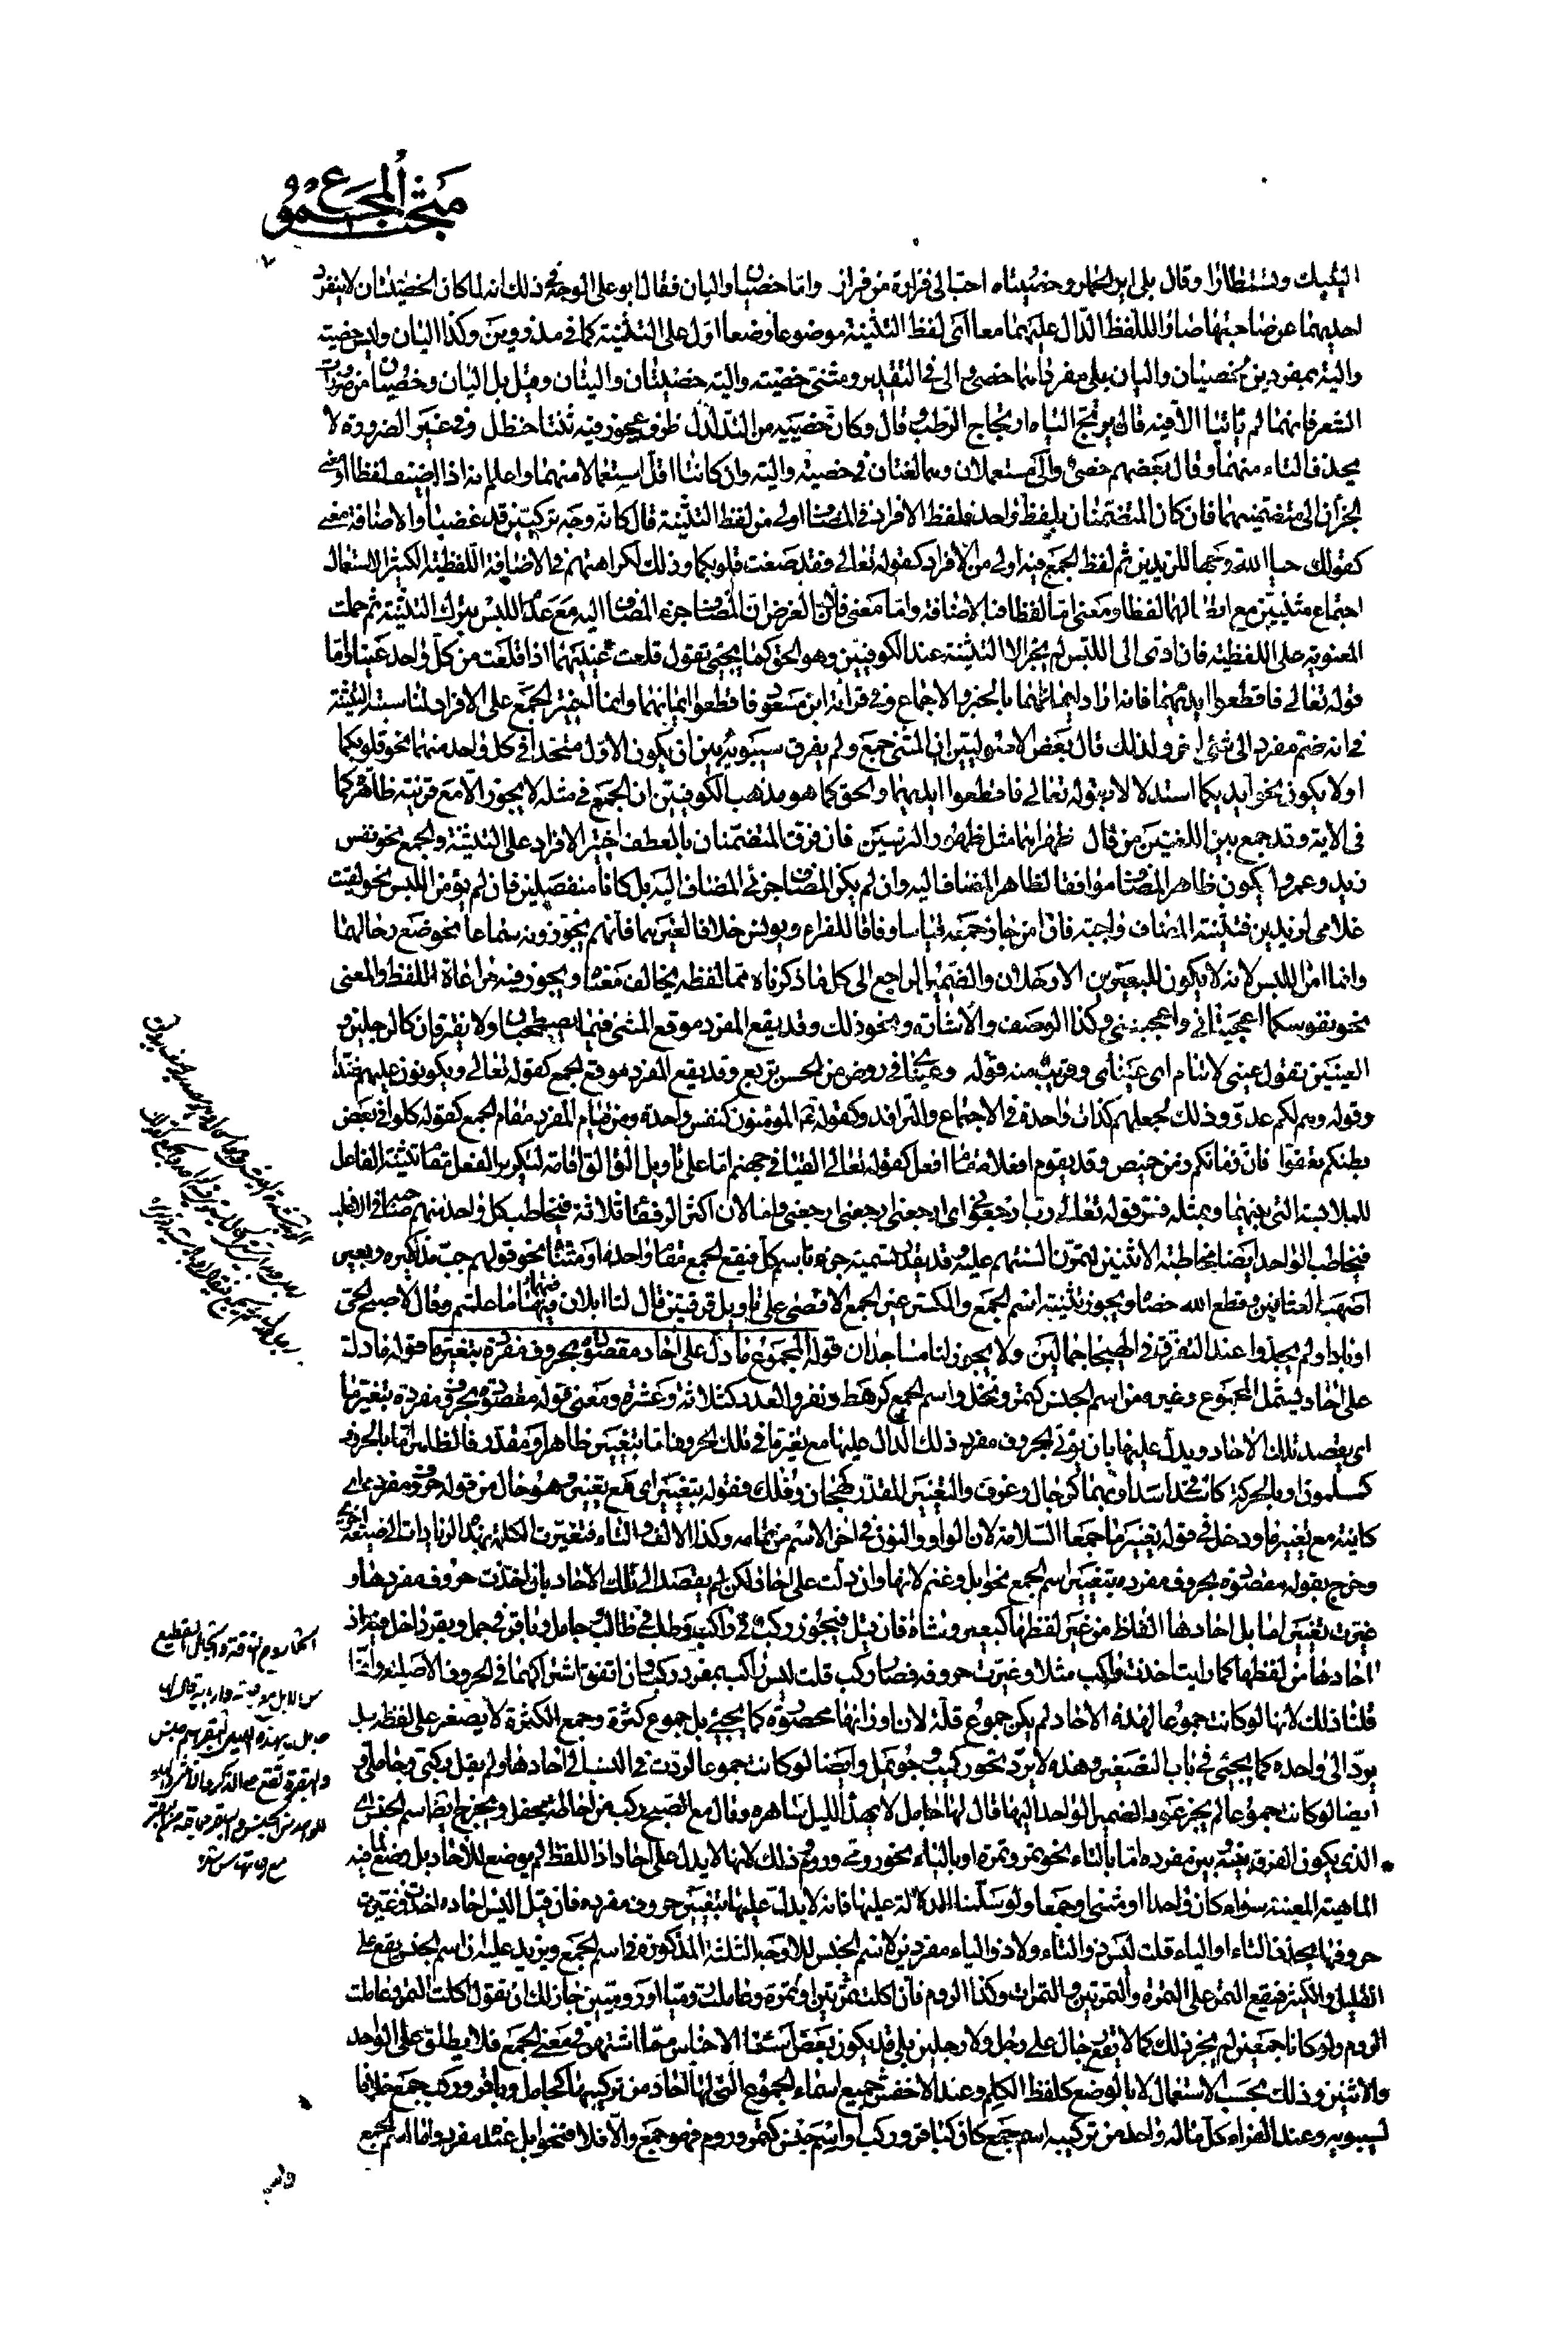 مبحث المجموع
اليتيك وتستطارا وقال بلى ابر الحمار وخصيتاه احب الى فزارة من فزار واما خصيان واليان فقال ابو على الوجه فى ذلك انه لما كان الخصيتان لا ينفرد
احديهما عن صاحبتها صار اللفظ الدال عليهما معا اى لفظ التثنية موضوعا وضعا اول على التثنية كما فى مذروين وكذا اليان وليس خصية
والية بمفردين لخصيان واليان بل مفرداهما خصى والى فى التقدير ومثنى خصية والية خصيتان واليتان وقيل بل اليان وخصيان من ضرورات
الشعر فانهما لم ياتيا الا فيه قال يرتج الياه ارتجاج الوطب وقال وكان خصييه من التدلدل ظرف عجوز فيه ثنتا حنظل وفى غير الضرورة لا
يحذف التاء منهما وقال بعضهم خصى والى مستعملان وهما لغتان فى خصية والية وان كانتا اقل استعمالا منهما واعلم انه اذا اضيف لفظا او معنى
الجزءان الى متضمنيهما فان كان المتضمنان بلفظ واحد فلفظ الافراد فى المضاف اولى من لفظ التثنية قال كانه وجه تركيين قد غضبا والاضافة معنى
كقولك حيا الله وجها للزيدين ثم لفظ الجمع فيه اولى من الافراد كقوله تعالى فقد صغت قلوبكما وذلك لكراهتهم فى الاضافة اللفظية الكثيرة الاستعمال
اجتماع مثنيين مع اتصالهما لفظا ومعنى اما لفظا فبالاضافة واما معنى فلان الغرض ان المضاف جزء المضاف اليه مع عدم اللبس بترك التثنية ثم حملت
المعنوية على اللفظية فان ادى الى اللبس لم يجز الا التثنية عند الكوفيين وهو الحق كما يجيئ تقول قلعت عينيهما اذا قلعت من كل واحد عينا واما
قوله تعالى فاقطعوا ايديهما فانه اراد ايمانهما بالخبر والاجماع وفى قراءة ابن مسعود فاقطعوا ايمانهما وانما اختير الجمع على الافراد لمناسبته التثنية
فى انه ضم مفرد الى شئ اخر ولذلك قال بعض الاصوليين ان المثنى جمع ولم يفرق سيبويه بين ان يكون الاول متحدا فى كل واحد منهما نحو قلوبكما
او لا يكون نحو ايديكما استدلالا بقوله تعالى فاقطعوا ايديهما والحق كما هو مذهب الكوفيين ان الجمع فى مثله لا يجوز الا مع قرينة ظاهرة كما
فى الاية وقد جمع بين اللغتين من قال ظهراهما مثل ظهور الترسين فان فرق المتضمنان بالعطف اختير الافراد على التثنية والجمع نحو نفس
زيد وعمرو ليكون ظاهر المضاف موافقا لظاهر المضاف اليه وان لم يكن المضاف جزئى المضاف اليه بل كانا منفصلين فان لم يؤمن اللبس نحو لقيت
غلامى الزيدين فتثنية المضاف واجبة فان امن جاز جمعه قياسا وفاقا للفراء ويونس خلافا لغيرهما فانهم يجوزونه سماعا نحو ضع رحالهما
وانما امن اللبس لانه لا يكون للبعيرين الا رحلان والضمير الراجع الى كل ما ذكرناه مما لفظه يخالف معناه ويجوز فيه مراعاة اللفظ والمعنى
نحو نفوسكما اعجبتانى واعجبتنى وكذا الوصف والاشارة ونحو ذلك وقد يقع المفرد موقع المثنى فيما يصطحبان ولا يفترقان كالرجلين و
العينين تقول عينى لا تنام اى عيناى وقريب منه قوله وعيناى فى روض من الحسن ترتع وقد يقع المفرد موقع الجمع كقوله تعالى ويكونون عليهم ضدا
وقوله وهم لكم عدو وذلك لجعلهم كذات واحدة فى الاجتماع والترافد وكقوله المؤمنون كنفس واحدة ومن قيام المفرد مقام الجمع كقوله كلوا فى بعض
بطنكم تعفوا فان زمانكم زمن خميص وقد يقوم افعلا مقام افعل كقوله تعالى القيا فى جهنم اما على تاويل الق الق اقامة لتكرير الفعل مقام تثنية الفاعل
للملابسة التى بينهما وبمثله فسر قوله تعالى رب ارجعون اى ارجعنى ارجعنى ارجعنى واما لان اكثر الرفقاء ثلاثة فيخاطب كل واحد منهم صاحبيه فى الاغلب
فيخاطب الواحد ايضا مخاطبة الاثنين لتمرن السنتهم عليه وقد يقدر تسمية جزء باسم كل فيقع الجمع مقام واحده او مثناه نحو قولهم جب مذاكيره وبعير
اصهب العثانين وقطع الله خصاه ويجوز تثنية اسم الجمع والمكسر غير الجمع الاقصى على تاويل فرقتين قال لنا ابلان فيهما ما علمتم وقال لاصبح الحى
اوبادا ولم يجدوا عند التفرق فى الهيجا جمالين ولا يجوز لنا مساجدان قوله المجموع ما دل على احاد مقصودة بحروف مفرده بتغيير ما قوله ما دل
على احاد يشمل المجموع وغيره من اسم الجنس كتمر ونخل واسم الجمع كرهط ونفر والعدد كثلاثة وعشرة ومعنى قوله مقصودة بحروف مفرده بتغيير ما
اى يقصد تلك الاحاد ويدل عليها بان يؤتى بحروف مفرد ذلك الدال عليها مع تغيير ما فى تلك الحروف اما بتغيير ظاهر او مقدر فالظاهر اما بالحروف
كمسلمون او بالحركة كاسد فى اسد او بهما كرجال وغرف والتغيير المقدر كهجان وفلك فقوله بتغيير اى مع تغيير وهو حال من قوله حروف مفرده اى
كائنة مع تغيير ما ودخل فى قوله تغيير ما جمعا السلامة لان الواو والنون فى اخر الاسم من تمامه وكذا الالف والتاء فتغيرت الكلمة بهذه الزيادات الى صيغة اخرى
وخرج بقوله مقصودة بحروف مفرده بتغيير اسم الجمع نحو ابل وغنم لانها وان دلت على احاد لكن لم يقصد الى تلك الاحاد بان اخذت حروف مفردها و
غيرت تغيير ما بل احادها الفاظ من غير لفظها كبعير وشاة فان قيل فيجوز ركب فى راكب وطلب فى طالب وجامل وباقر فى جمل وبقر داخل فيه اذ
احادها من لفظها كما رايت اخذت راكب مثلا وغيرت حروفه فصار ركب قلت ليس راكب بمفرد ركب وان اتفق اشتراكهما فى الحروف الاصلية وانما
قلنا ذلك لانها لو كانت جموعا لهذه الاحاد لم يكن جموع قلة لان اوزانها محصورة كما يجيئ بل جموع كثرة وجمع الكثرة لا يصغر على لفظه بل
يرد الى واحده كما يجيئ فى باب التصغير وهذه لا يرد نحو ركيب وجويمل وايضا لو كانت جموعا لردت فى النسب الى احادها ولم يقل ركبى وجاملى و
ايضا لو كانت جموعا لم يجز عود الضمير الواحد اليها قال لها جامل لا يهدأ الليل سامره وقال مع الصبح ركب من احاظة مجفل ويخرج ايضا اسم الجنس اى
الذى يكون الفرق بينه وبين مفرده اما بالتاء نحو تمر وتمرة او بالياء نحو رومى وروم وذلك لانها لا يدل على احاد اذ اللفظ لم يوضع للاحاد بل وضع لما فيه
الماهية المعينة سواء كان واحدا او مثنى او جمعا ولو سلمنا الدلالة عليها فانه لا يدل عليها بتغيير حروف مفرده فان قيل اليس احاده اخذت وغيرت
حروفها بحذف التاء او الياء قلت ليس ذو التاء ولا ذو الياء مفردين لاسم الجنس للاوجه الثلثة المذكورة فى اسم الجمع ويزيد عليه ان اسم الجنس يقع على
القليل والكثير فيقع التمر على التمرة والتمرتين والتمرات وكذا الروم فان اكلت تمرتين او تمرة وعاملت روميا او روميين جاز لك ان تقول اكلت التمر وعاملت
الروم ولو كانا جمعين لم يجز ذلك كما لا يقع رجال على رجل ولا رجلين بلى قد يكون بعض اسماء الاجناس مما اشتهر فى معنى الجمع فلا يطلق على الواحد
والاثنين وذلك بحسب الاستعمال لا بالوضع كلفظ الكلم وعند الاخفش جميع اسماء الجموع التى لها احاد من تركيبها كجامل وباقر وركب جمع خلافا
لسيبويه وعند الفراء كل ما له واحد من تركيبه اسم جمع كان كباقر وركب او اسم جنس كتمر وروم فهو جمع والا فلا فنحو ابل عنده مفرد واما اسم الجمع